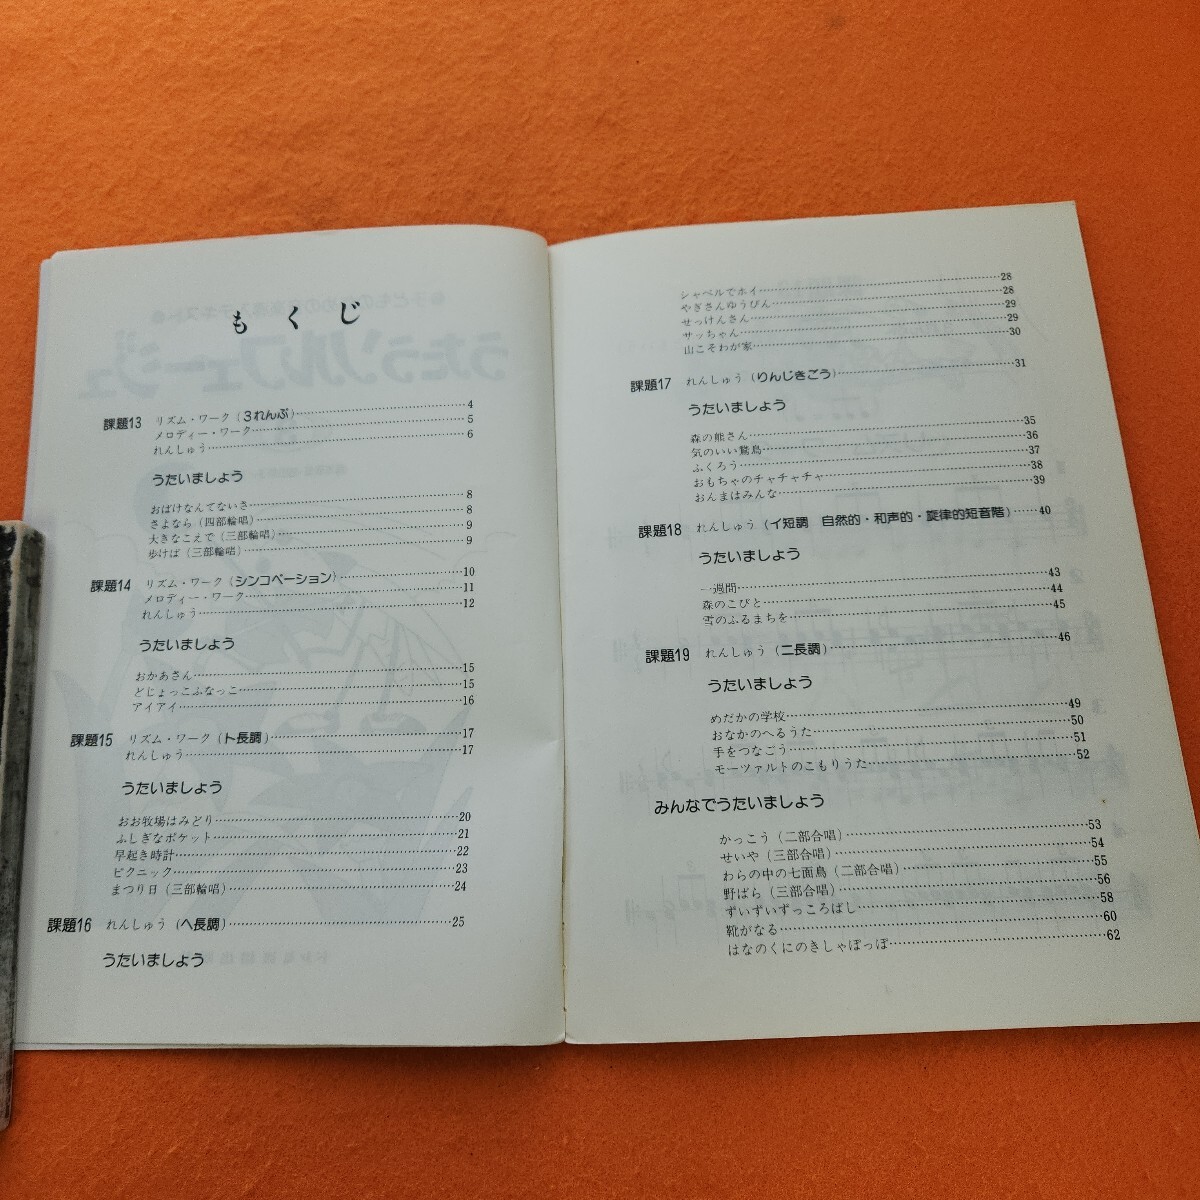 もくじ
課題13 リズム・ワーク(3れんぷ)…4
メロディー・ワーク…5
れんしゅう…6
うたいましょう
おばけなんてないさ…8
さよなら(四部輪唱)…8
大きなこえで(三部輪唱)…9
歩けば(三部輪唱)…9
課題14 リズム・ワーク(シンコペーション)…10
メロディー・ワーク…11
れんしゅう…12
うたいましょう
おかあさん…15
どじょっこふなっこ…15
アイアイ…16
課題15 リズム・ワーク(ト長調)…17
れんしゅう…17
うたいましょう
おお牧場はみどり…20
ふしぎなポケット…21
早起き時計…22
ピクニック…23
まつり日(三部輪唱)…24
課題16 れんしゅう(ヘ長調)…25
うたいましょう
シャベルでホイ…28
やぎさんゆうびん…28
せっけんさん…29
サッちゃん…29
山こそわが家…30
課題17 れんしゅう(りんじきごう)…31
うたいましょう
森の熊さん…35
気のいい鵞鳥…36
ふくろう…37
おもちゃのチャチャチャ…38
おんまはみんな…39
課題18 れんしゅう(イ短調 自然的・和声的・旋律的短音階)…40
うたいましょう
一週間…43
森のこびと…44
雪のふるまちを…45
課題19 れんしゅう(ニ長調)…46
うたいましょう
めだかの学校…49
おなかのへるうた…50
手をつなごう…51
モーツァルトのこもりうた…52
みんなでうたいましょう
かっこう(二部合唱)…53
せいや(三部合唱)…54
わらの中の七面鳥(二部合唱)…55
野ばら(三部合唱)…56
ずいずいずっころばし…58
靴がなる…60
はなのくにのきしゃぽっぽ…62